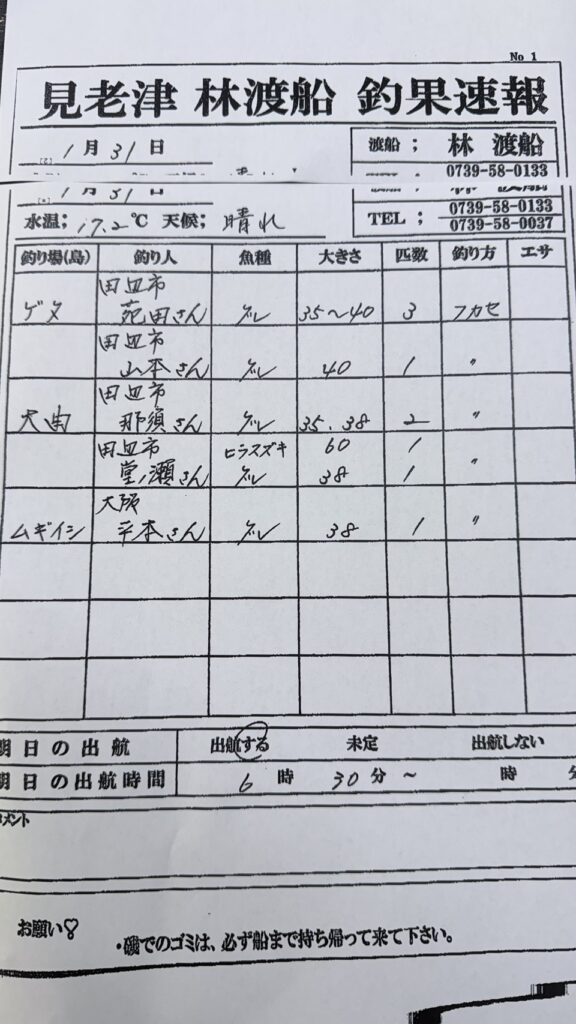 No 1
見老津 林渡船 釣果速報
1月31日
渡船； 林 渡船
0739-58-0133
1月31日
0739-58-0133
水温；17.2℃ 天候；晴れ
TEL； 0739-58-0037
釣り場(島) 釣り人 魚種 大きさ 匹数 釣り方 エサ
田辺市
さん グレ 35〜40 3 フカセ
田辺市
山本さん グレ 40 1 〃
田辺市
那須さん グレ 35.38 2 〃
田辺市 ヒラスズキ 60 1
堂ノ瀬さん グレ 38 1 〃
大阪
ムギイシ 平本さん グレ 38 1 〃
明日の出航 出航する 未定 出航しない
明日の出航時間 6時30分〜 時 分
コメント
お願い♡
・磯でのゴミは、必ず船まで持ち帰って来て下さい。